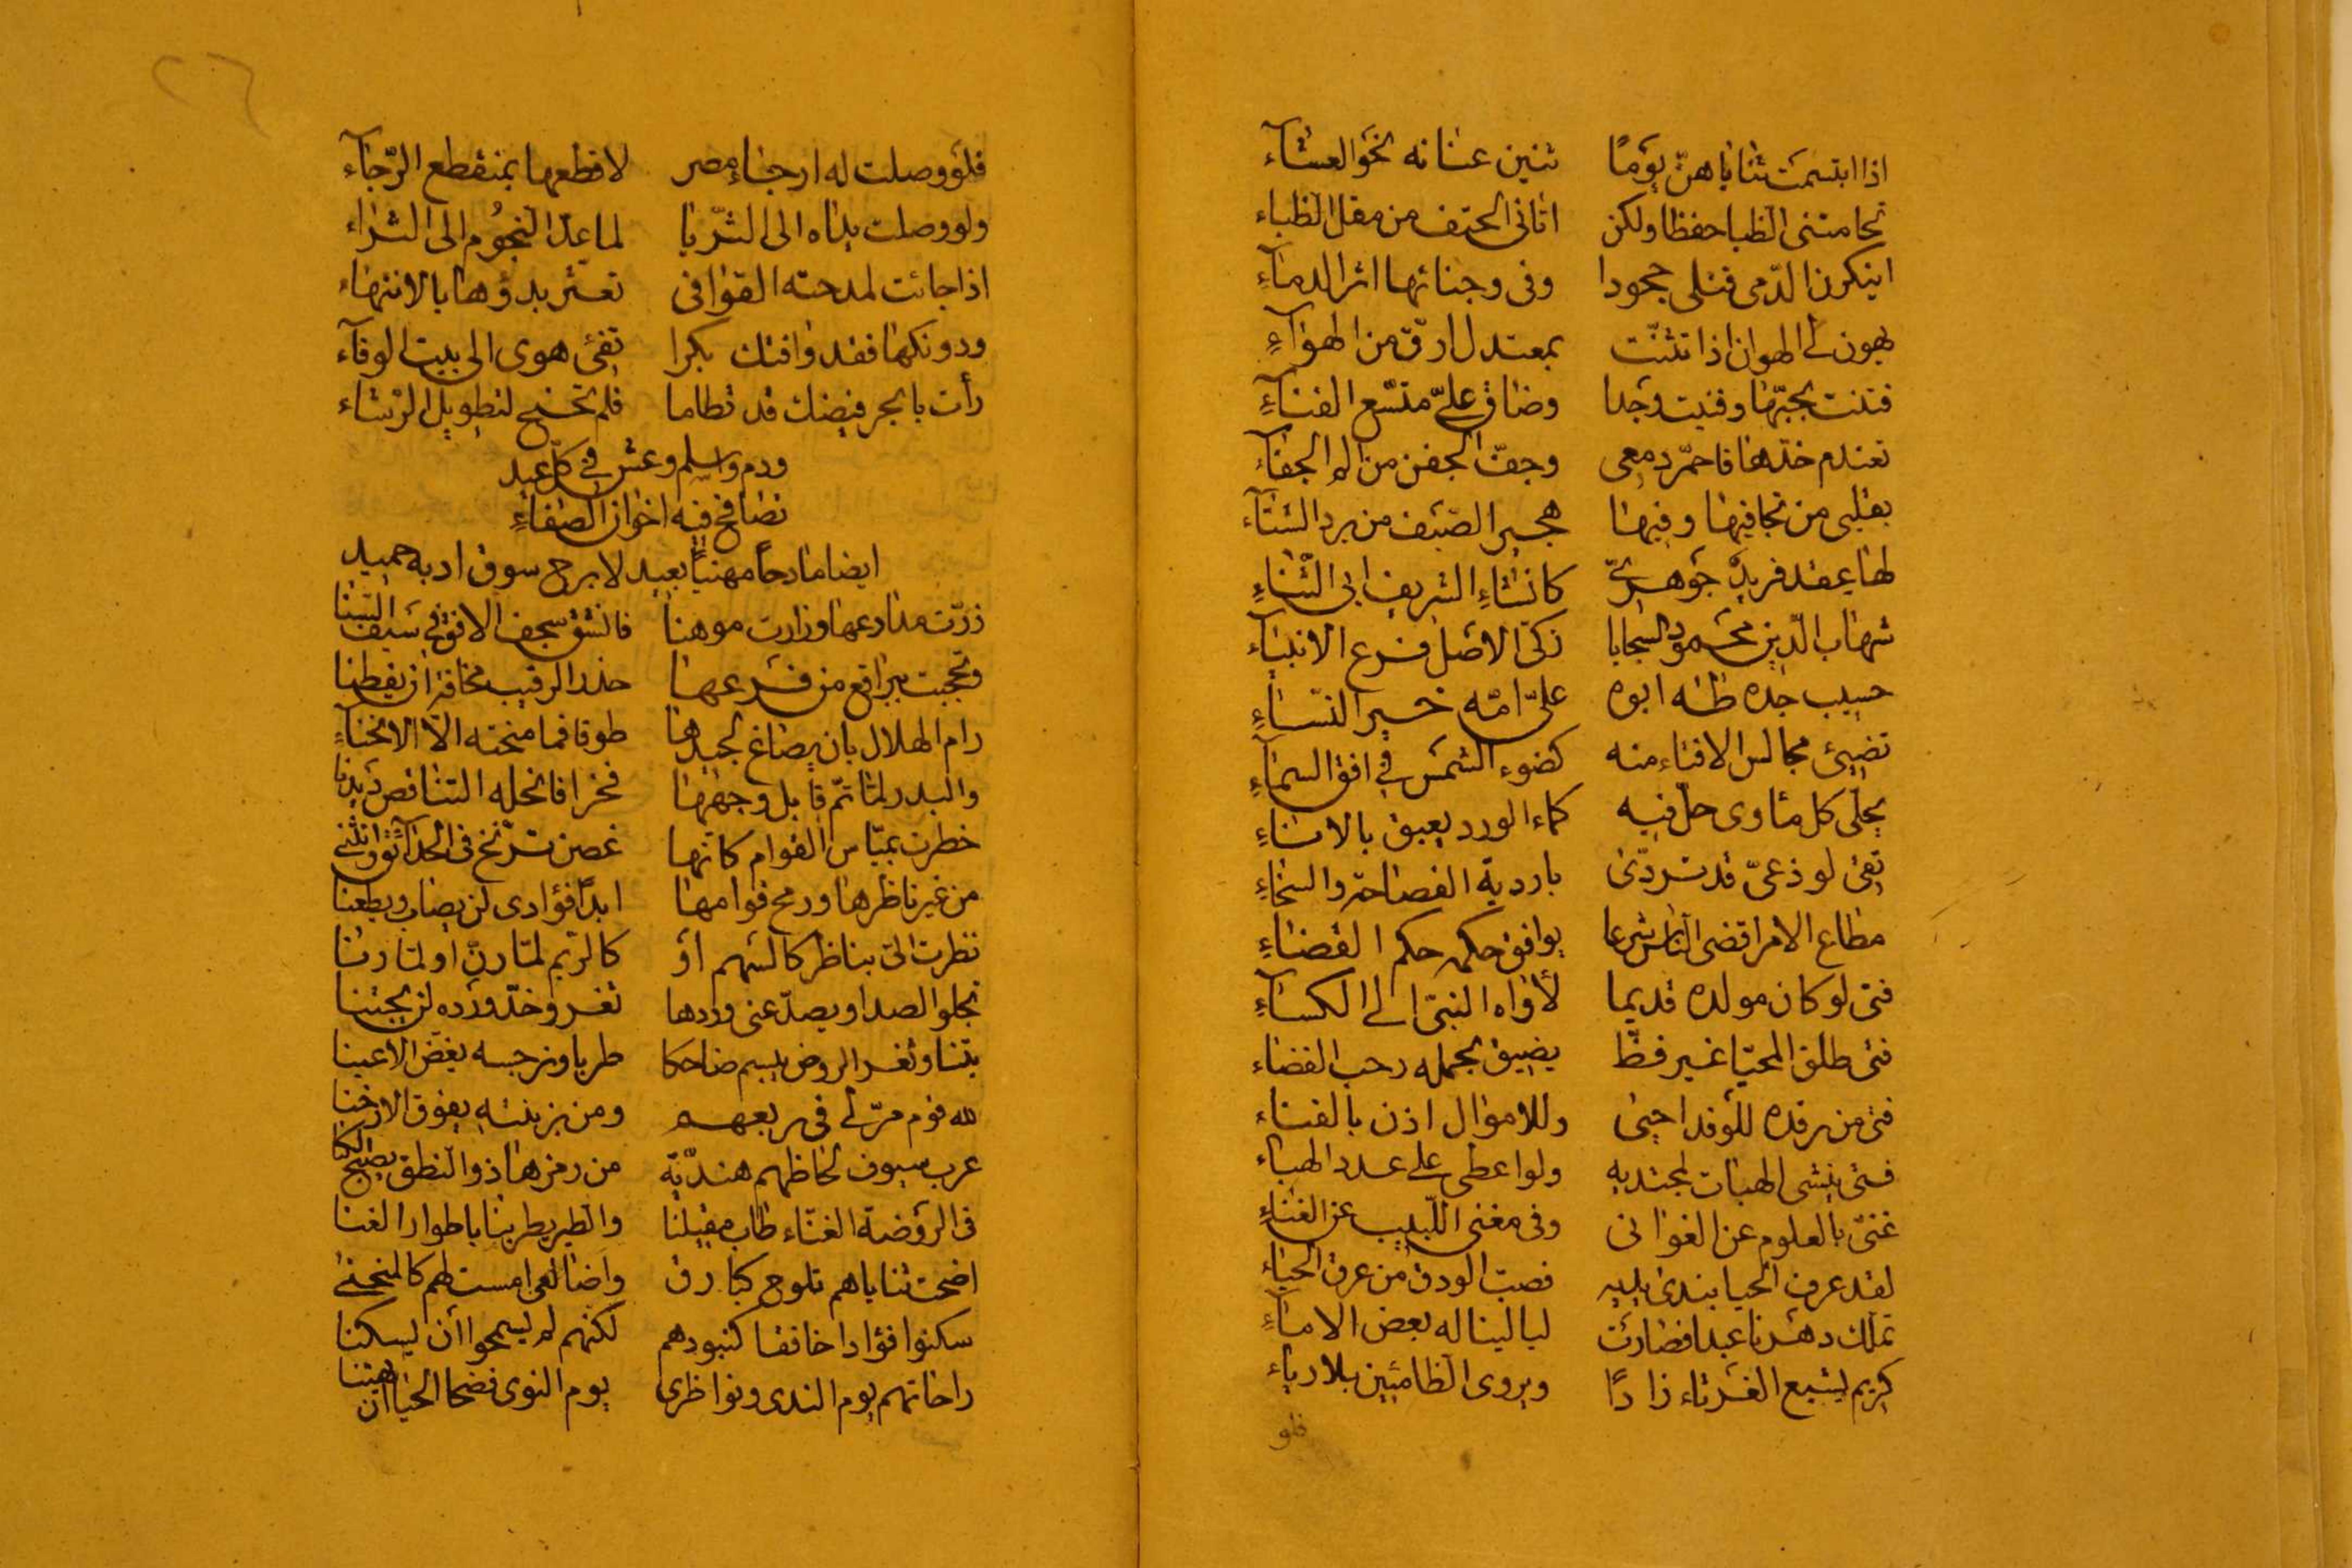 اذا ابتسمت ثناياهن يوما ثنين عنانه نحو العشاء
تحامتنى الظبا حفظا ولكن اتانى الحتف من مقل الظباء
اينكرن الدّمى قتلى جحودا وفى وجناتها اثر الدماء
يهون لى الهوان اذا تثنّت بمعتدل ارقّ من الهواء
فتنت بحبّها وفنيت وجدا وضاق علىّ متّسع الفناء
تعندم خدّها فاحمرّ دمعى وجفّ الجفن من الم الجفاء
بقلبى من تجافيها وفيها هجير الصّيف من برد الشتاء
لها بعقد فريد جوهرىّ كانشاء الشريف ابى الثّناء
شهاب الدّين محمود السجايا زكىّ الاصل فرع الانبياء
حسيب جده طه ابوه علىّ امّه خير النّساء
تضيئ مجالس الافتاء منه كضوء الشمس فى افق السماء
يجلّى كل مثاوى حلّ فيه كماء الورد يعبق بالاناء
تقى لوذعىّ قد تردّى باردية الفصاحة والسخاء
مطاع الامر اقضى الناس شرعا يوافق حكمه حكم القضاء
فتى لو كان مولده قديما لأواه النبىّ الى الكساء
فتى طلق المحيّا غير فظّ يضيق بحمله رحب الفضاء
فتى من رفده للوفد احيى وللاموال اذن بالفناء
فتى ينشى الهبات لمجتديه ولو اعطى على عدد الهباء
غنىّ بالعلوم عن الغوانى وفى مغنى اللّبيب عن الغناء
لقد عرف الحيا بندى يديه فصبّ الودق من عرق الحياء
تملّك دهرنا عبدا فصارت ليالينا له بعض الاماء
كريم يشبع الغرثاء زادًا ويروى الظامئين بلا رياء
فلو
فلو وصلت له ارجاء مصر لاقطعها بمنقطع الرّجاء
ولو وصلت يداه الى الثّريا لما عدّ النجوم الى الثراء
اذا جائت لمدحته القوافى تعثر بدؤها بالانتهاء
ودونكها فقد وافتك بكرا تفئ هوى الى بيت الوفاء
رأت بالبحر فيضك قد تطاما فلم تحتج لتطويل الرّشاء
ودم واسلم وعش فى كلّ عيد
تصافح فيه اخوان الصفاء
ايضا مادحاً مهنياً بعيد لا برح سوق ادبه حميد
زرّت مدارعها وزارت موهنا فانشق سجف الافق فى سيف السّنا
وتحجبت ببراقع من فرعها حذر الرقيب مخافة ان يفطنا
رام الهلال بان يصاغ لجيدها طوقا فما منحته الّا الانحناء
والبدر لمّا تمّ قابل وجهها فخرا فانحله التناقص ديدنا
خطرت بميّاس القوام كانّها غصن ترنّح فى الحدآئق وانثنى
من غير ناظرها ورمح قوامها ابدًا فؤادى لن يصاب ويطعنا
نظرت الىّ بناظر كالسّهم أو كالرّيم لمّا رنّ او لمّا رنا
تجلو الصدا ويصدّ عنى وردها ثغر وخدّ ورده لن يجتنا
بتنا وثغر الروض يبسم ضاحكا طربا ونرجسه يغض الاعينا
لله قوم مرّ لى فى ربعهم
عرب سيوف لحاظهم هنديّة من رمزها ذو النطق يصبح الكنا
فى الرّوضة الغنّاء طاب مقيلنا والطير يطربنا باطوار الغنا
اضحت ثناياهم تلوح كبارق واضالعى امست لهم كالمنحنى
سكنوا فؤادا خافقا كبنودهم لكنّهم لم يسمحوا أن يسكنا
راحاتهم يوم الندى ونواظرى يوم النوى فضحا الحيا ان يهتنا